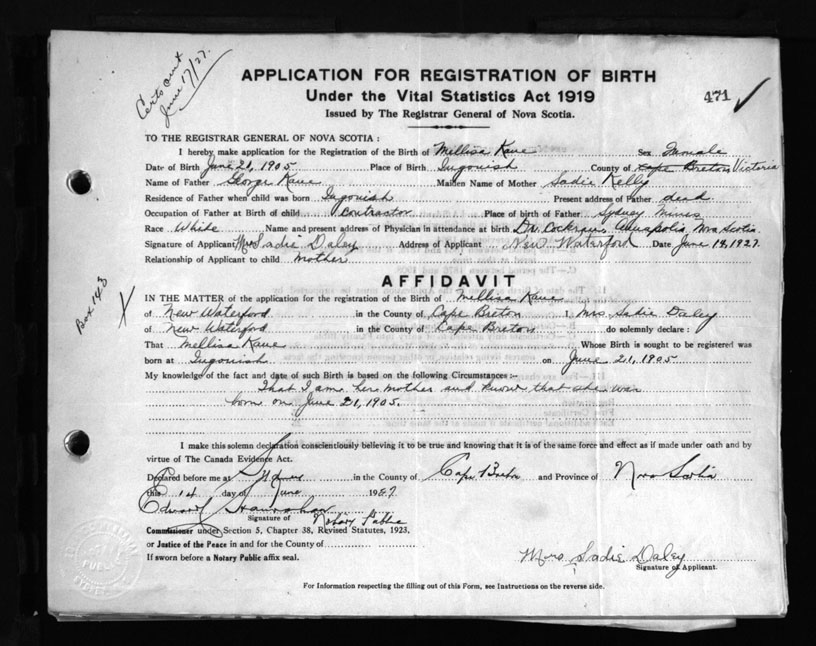 Certs sent
June 17/27.
APPLICATION FOR REGISTRATION OF BIRTH
Under the Vital Statistics Act 1919
471
Issued by The Registrar General of Nova Scotia.
TO THE REGISTRAR GENERAL OF NOVA SCOTIA:
I hereby make application for the Registration of the Birth of Mellisa Kane Sex Female
Date of Birth June 21, 1905 Place of Birth Ingonish County of Cape Breton Victoria
Name of Father George Kane Maiden Name of Mother Sadie Kelly
Residence of Father when child was born Ingonish Present address of Father dead
Occupation of Father at Birth of child Contractor Place of birth of Father Sydney Mines
Race White Name and present address of Physician in attendance at birth Dr. Annapolis Nova Scotia.
Signature of Applicant Mrs Sadie Daley Address of Applicant New Waterford Date June 14, 1927.
Relationship of Applicant to child mother
AFFIDAVIT
Box 143
IN THE MATTER of the application for the registration of the Birth of Mellisa Kane
of New Waterford in the County of Cape Breton I, Mrs. Sadie Daley
of New Waterford in the County of Cape Breton do solemnly declare:
That Mellisa Kane Whose Birth is sought to be registered was
born at Ingonish on June 21, 1905
My knowledge of the fact and date of such Birth is based on the following Circumstances:—
That I am her mother and know that she was
born on June 21, 1905.
I make this solemn declaration conscientiously believing it to be true and knowing that it is of the same force and effect as if made under oath and by
virtue of The Canada Evidence Act.
Declared before me at Sydney in the County of Cape Breton and Province of Nova Scotia
this 14 day of June 1927
Edward Hanrahan
Signature of Notary Public
Commissioner under Section 5, Chapter 38, Revised Statutes, 1923,
or Justice of the Peace in and for the County of
If sworn before a Notary Public affix seal.
Mrs. Sadie Daley
Signature of Applicant.
For Information respecting the filling out of this Form, see Instructions on the reverse side.